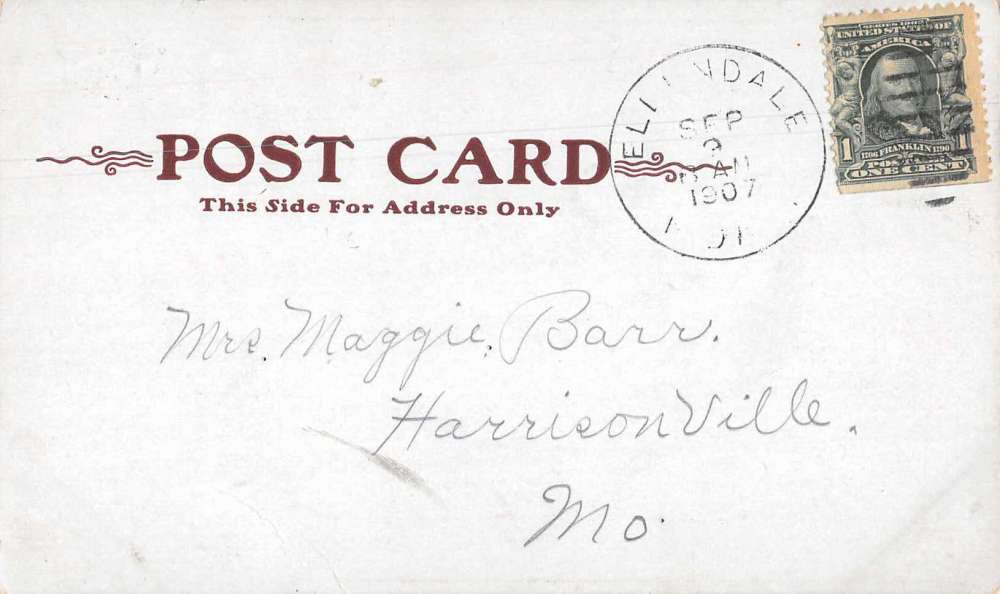 SERIES 1902
UNITED STATES OF
AMERICA
1 1706 FRANKLIN 1790 1
ONE CENT
SEP
AM
1907
POST CARD
This Side For Address Only
Mrs. Maggie. Barr.
HarrisonVille.
Mo.